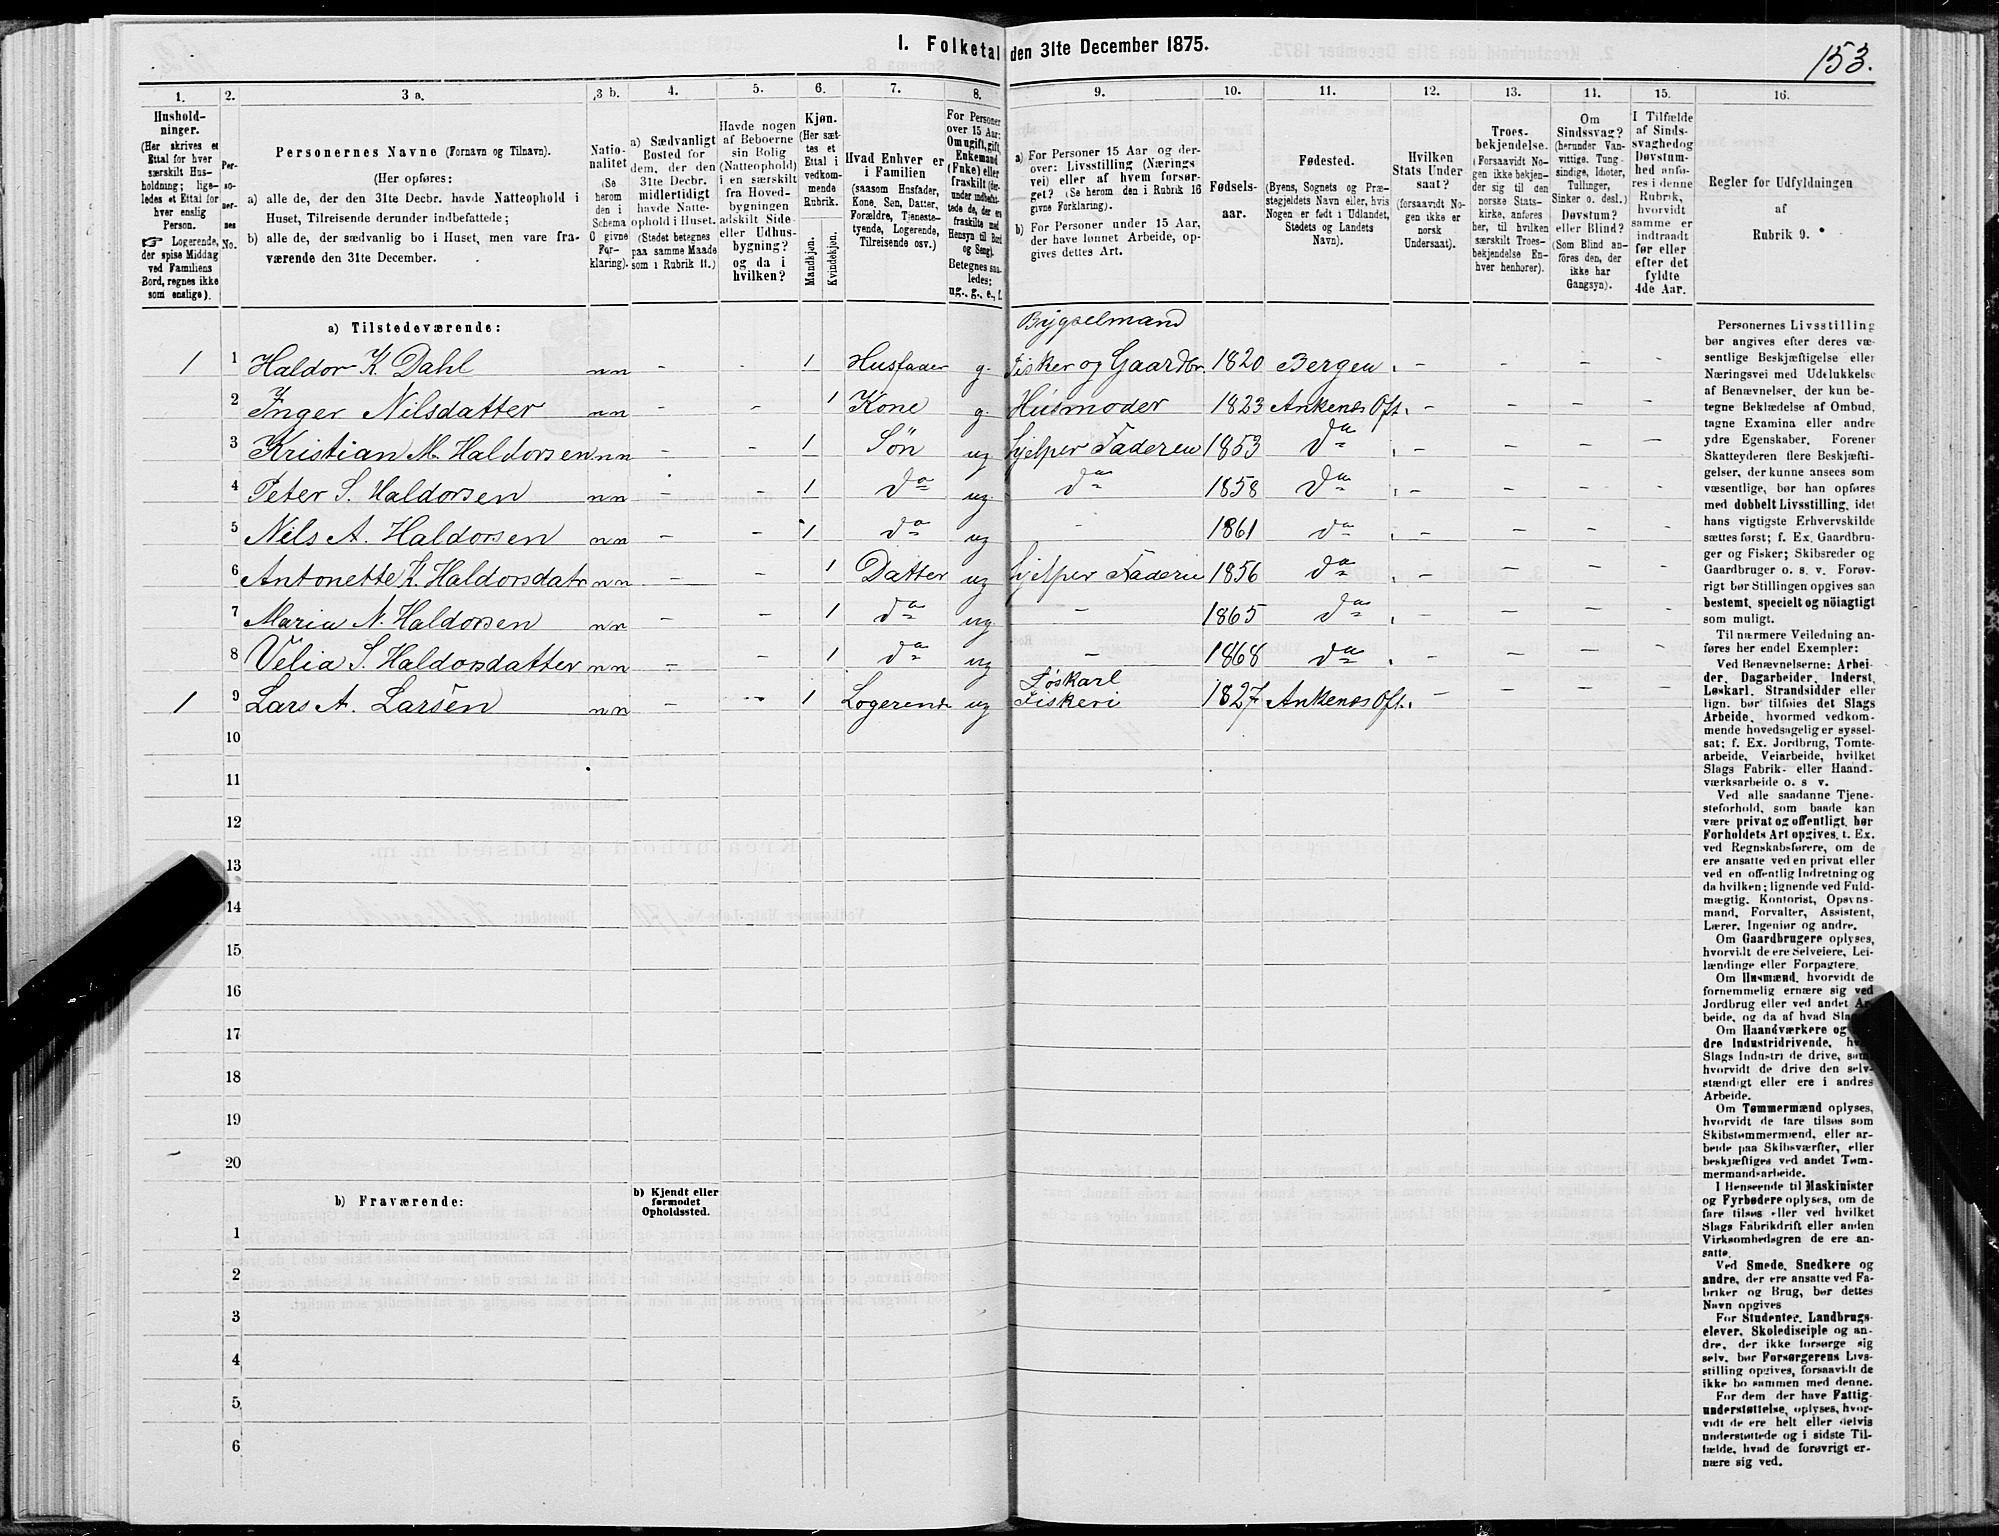 I. Folketal den 31te December 1875.
153.
1. 2. 3 a. 3 b. 4. 5. 6. 7. 8. 9. 10. 11. 12. 13. 11. 15. 16.
Husholdninger.
(Her skrives et
Ettal for hver
særskilt Husholdning; ligeledes
et Ettal for
hver enslig
Person.
☞ Logerende,
der spise Middag
ved Familiens
Bord, regnes ikke
som enslige).
Personernes No.
Personernes Navne (Fornavn og Tilnavn).
(Her opføres:
a) alle de, der den 31te Decbr. havde Natteophold i
Huset, Tilreisende derunder indbefattede;
b) alle de, der sædvanlig bo i Huset, men vare fraværende
den 31te December.
Nationalitet
(Se
herom
den i
Schema
6 givne
Forklaring).
a) Sædvanligt
Bosted for
dem, der den
31te Decbr.
midlertidigt
havde Natteophold
i Huset.
(Stedet betegnes
paa samme Maade
som i Rubrik 11.)
Havde nogen
af Beboerne
sin Bolig
(Natteophold)
i en særskilt
fra Hovedbygningen
adskilt Sideeller
Udhusbygning?
og da i
hvilken?
Kjøn.
(Her sættes
et
Ettal i
vedkommende
Rubrik.
Mandkjøn. Kvindekjøn.
Hvad Enhver er
i Familien
(saasom Husfader,
Kone, Søn, Datter,
Forældre, Tjenestetyende,
Logerende,
Tilreisende osv.)
For Personer
over 15 Aar:
Om ugift, gift,
Enkemand
(Enke) eller
fraskilt (derunder
indbefattede
de, der ere
fraskilte med
Hensyn til Bord
og Seng).
Betegnes saaledes:
ug., g., e., f.
a) For Personer 15 Aar og derover:
Livsstilling (Næringsvei)
eller af hvem forsørget?
(Se herom den i Rubrik 16
givne Forklaring).
b) For Personer under 15 Aar,
der have lønnet Arbeide, opgives
dettes Art.
Fødselsaar.
Fødested.
(Byens, Sognets og Præstegjeldets
Navn eller, hvis
Nogen er født i Udlandet,
Stedets og Landets
Navn).
Hvilken
Stats Undersaat?
(forsaavidt Nogen
ikke er
norsk
Undersaat).
Troesbekjendelse.
(Forsaavidt Nogen
ikke bekjender
sig til den
norske Statskirke,
anføres
her, til hvilken
særskilt Troesbekjendelse
Enhver
henhører).
Om
Sindssvag?
(herunder Vanvittige,
Tungsindige,
Idioter,
Tullinger,
Sinker o. desl.)
Døvstum?
eller Blind?
(Som Blind anføres
den, der
ikke har
Gangsyn).
I Tilfælde
af Sindssvaghed
og
Døvstumhed
anføres
i denne
Rubrik,
hvorvidt
samme er
indtraadt
før eller
efter det
fyldte
4de Aar.
Regler for Udfyldningen
af
Rubrik 9.
a) Tilstedeværende:
Bygselmand
1 1 Haldor K. Dahl nn - - 1 Husfader g. Fisker og Gaardbr. 1820 Bergen - - - -
2 Inger Nilsdatter nn - - 1 Kone g. Husmoder 1823 Ankenæs Oft. - - - -
3 Kristian M. Haldorsen nn - - 1 Søn ug hjelper Faderen 1853 da - - - -
4 Peter S. Haldorsen nn - - 1 da ug. da 1858 da - - - -
5 Nils A. Haldorsen nn - - 1 da ug - 1861 da - - - -
6 Antonette K. Haldorsdatr nn - - 1 Datter ug hjelper Faderen 1856 da - - - -
7 Maria N. Haldorsen nn - - 1 da ug. - 1865 da - - - -
8 Velia S. Haldorsdatter nn - - 1 da ug - 1868 da - - - -
Løskarl
1 9 Lars A. Larsen nn - - 1 Logerende ug Fiskeri 1827 Ankenæs Oft. - - - -
10
11
12
13
14
15
16
17
18
19
20
b) Fraværende:
b) Kjendt eller
formodet
Opholdssted.
1
2
3
4
5
6
Personernes Livsstilling
bør angives efter deres væsentlige
Beskjæftigelse eller
Næringsvei med Udelukkelse
af Benævnelser, der kun betegne
Beklædelse af Ombud,
tagne Examina eller andre
ydre Egenskaber. Forener
Skatteyderen flere Beskjæftigelser,
der kunne ansees som
væsentlige, bør han opføres
med dobbelt Livsstilling, idet
hans vigtigste Erhvervskilde
sættes først; f. Ex. Gaardbruger
og Fisker; Skibsreder og
Gaardbruger o. s. v. Forøvrigt
bør Stillingen opgives saa
bestemt, specielt og nøiagtigt
som muligt.
Til nærmere Veiledning anføres
her endel Exempler:
Ved Benævnelserne: Arbeider,
Dagarbeider, Inderst,
Løskarl, Strandsidder eller
lign. bør tilføies det Slags
Arbeide, hvormed vedkommende
hovedsagelig er sysselsat;
f. Ex. Jordbrug, Tomtearbeide,
Veiarbeide, hvilket
Slags Fabrik- eller Haandværksarbeide
o. s. v.
Ved alle saadanne Tjenesteforhold,
som baade kan
være privat og offentligt, bør
Forholdets Art opgives, t. Ex.
ved Regnskabsførere, om de
ere ansatte ved en privat eller
ved en offentlig Indretning og
da hvilken; lignende ved Fuldmægtig,
Kontorist, Opsynsmand,
Forvalter, Assistent,
Lærer, Ingeniør og andre.
Om Gaardbrugere oplyses,
hvorvidt de ere Selveiere, Leilændinge
eller Forpagtere.
Om Husmænd, hvorvidt de
fornemmelig ernære sig ved
Jordbrug eller ved andet Arbeide,
og da af hvad Slags.
Om Haandværkere og
dre Industridrivende,
Slags Industri de drive, samt
hvorvidt de drive den selvstændigt
eller ere i andres
Arbeide.
Om Tømmermænd oplyses,
hvorvidt de fare tilsøs som
Skibstømmermænd, eller arbeide
paa Skibsværfter, eller
beskjæftiges ved andet Tømmermandsarbeide.
I Henseende til Maskinister
og Fyrbødere oplyses, om de
fare tilsøs eller ved hvilket
Slags Fabrikdrift eller anden
Virksomhedsgren de ere ansatte.
Ved Smede, Snedkere og
andre, der ere ansatte ved Fabriker
og Brug, bør dettes
Navn opgives
For Studenter, Landbrugselever,
Skoledisciple og andre,
der ikke forsørge sig
selv, bør Forsørgerens Livsstilling
opgives, forsaavidt de
ikke bo sammen med denne.
For dem, der have Fattigunderstøttelse,
oplyses, hvorvidt
de ere helt eller delvis
understøttede og i sidste Tilfælde,
hvad de forøvrigt ernære
sig ved.